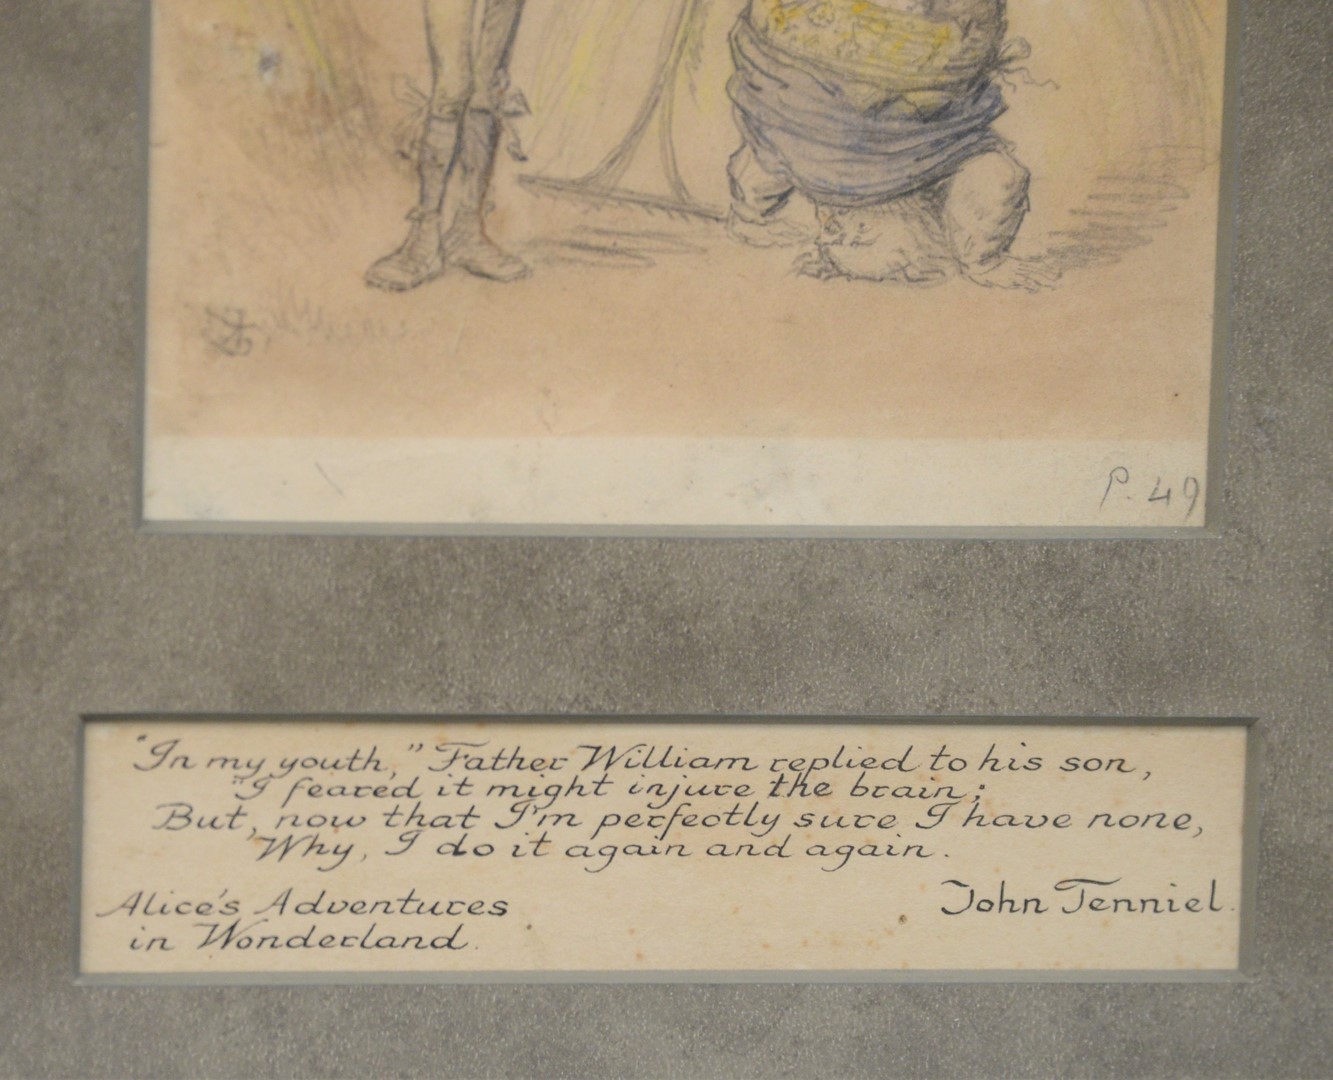 P. 49
"In my youth," Father William replied to his son,
"I feared it might injure the brain;
But, now that I'm perfectly sure I have none,
Why, I do it again and again.
Alice's Adventures
in Wonderland.
John Tenniel.